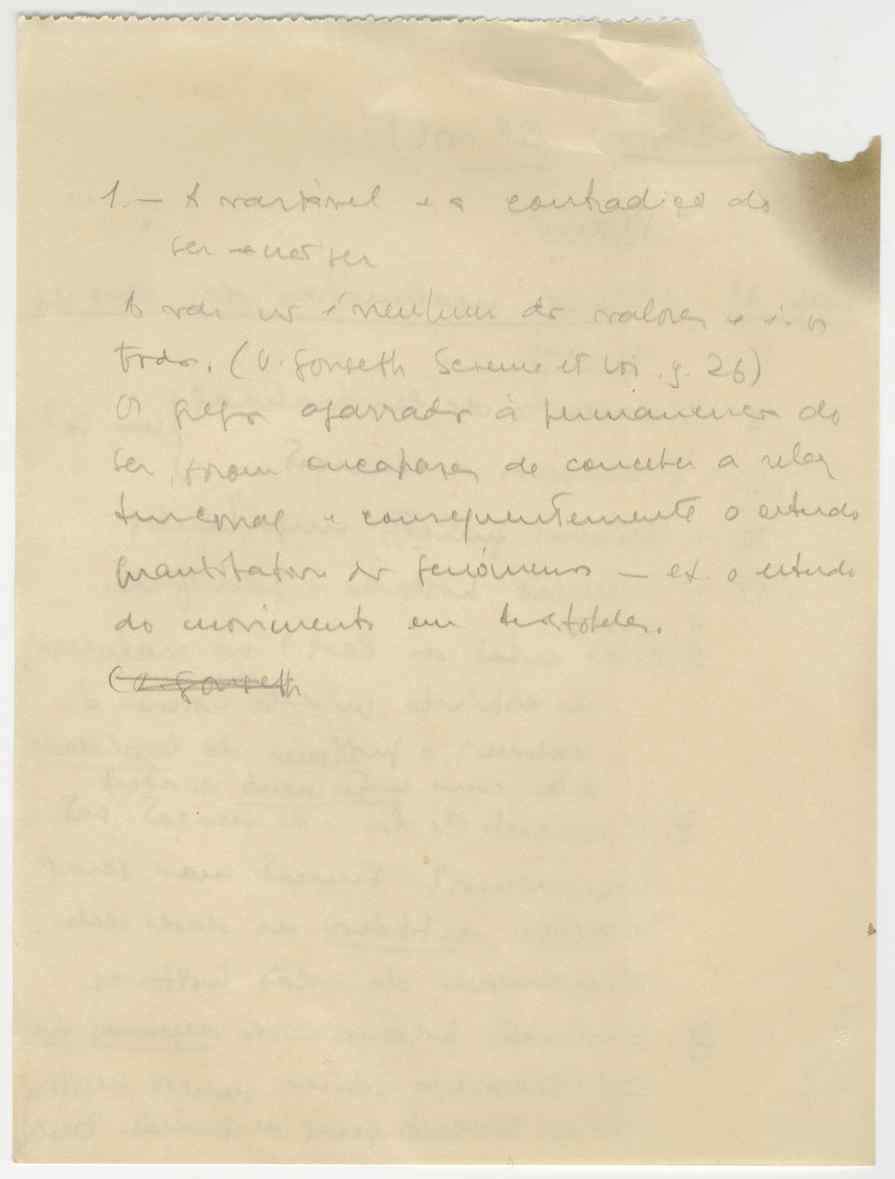 1 – A variável e a contradição do
ser – não ser
A não é nenhum dos valores e é os
todos. (v. Gonseth Science et Loi p. 26)
Os gregos agarrados à permanencia do
ser, foram incapazes de conceber a relação
funcional e consequentemente o estudo
quantitativo dos fenómenos – ex. o estudo
do movimento em Aristoteles.
(v. Gonseth